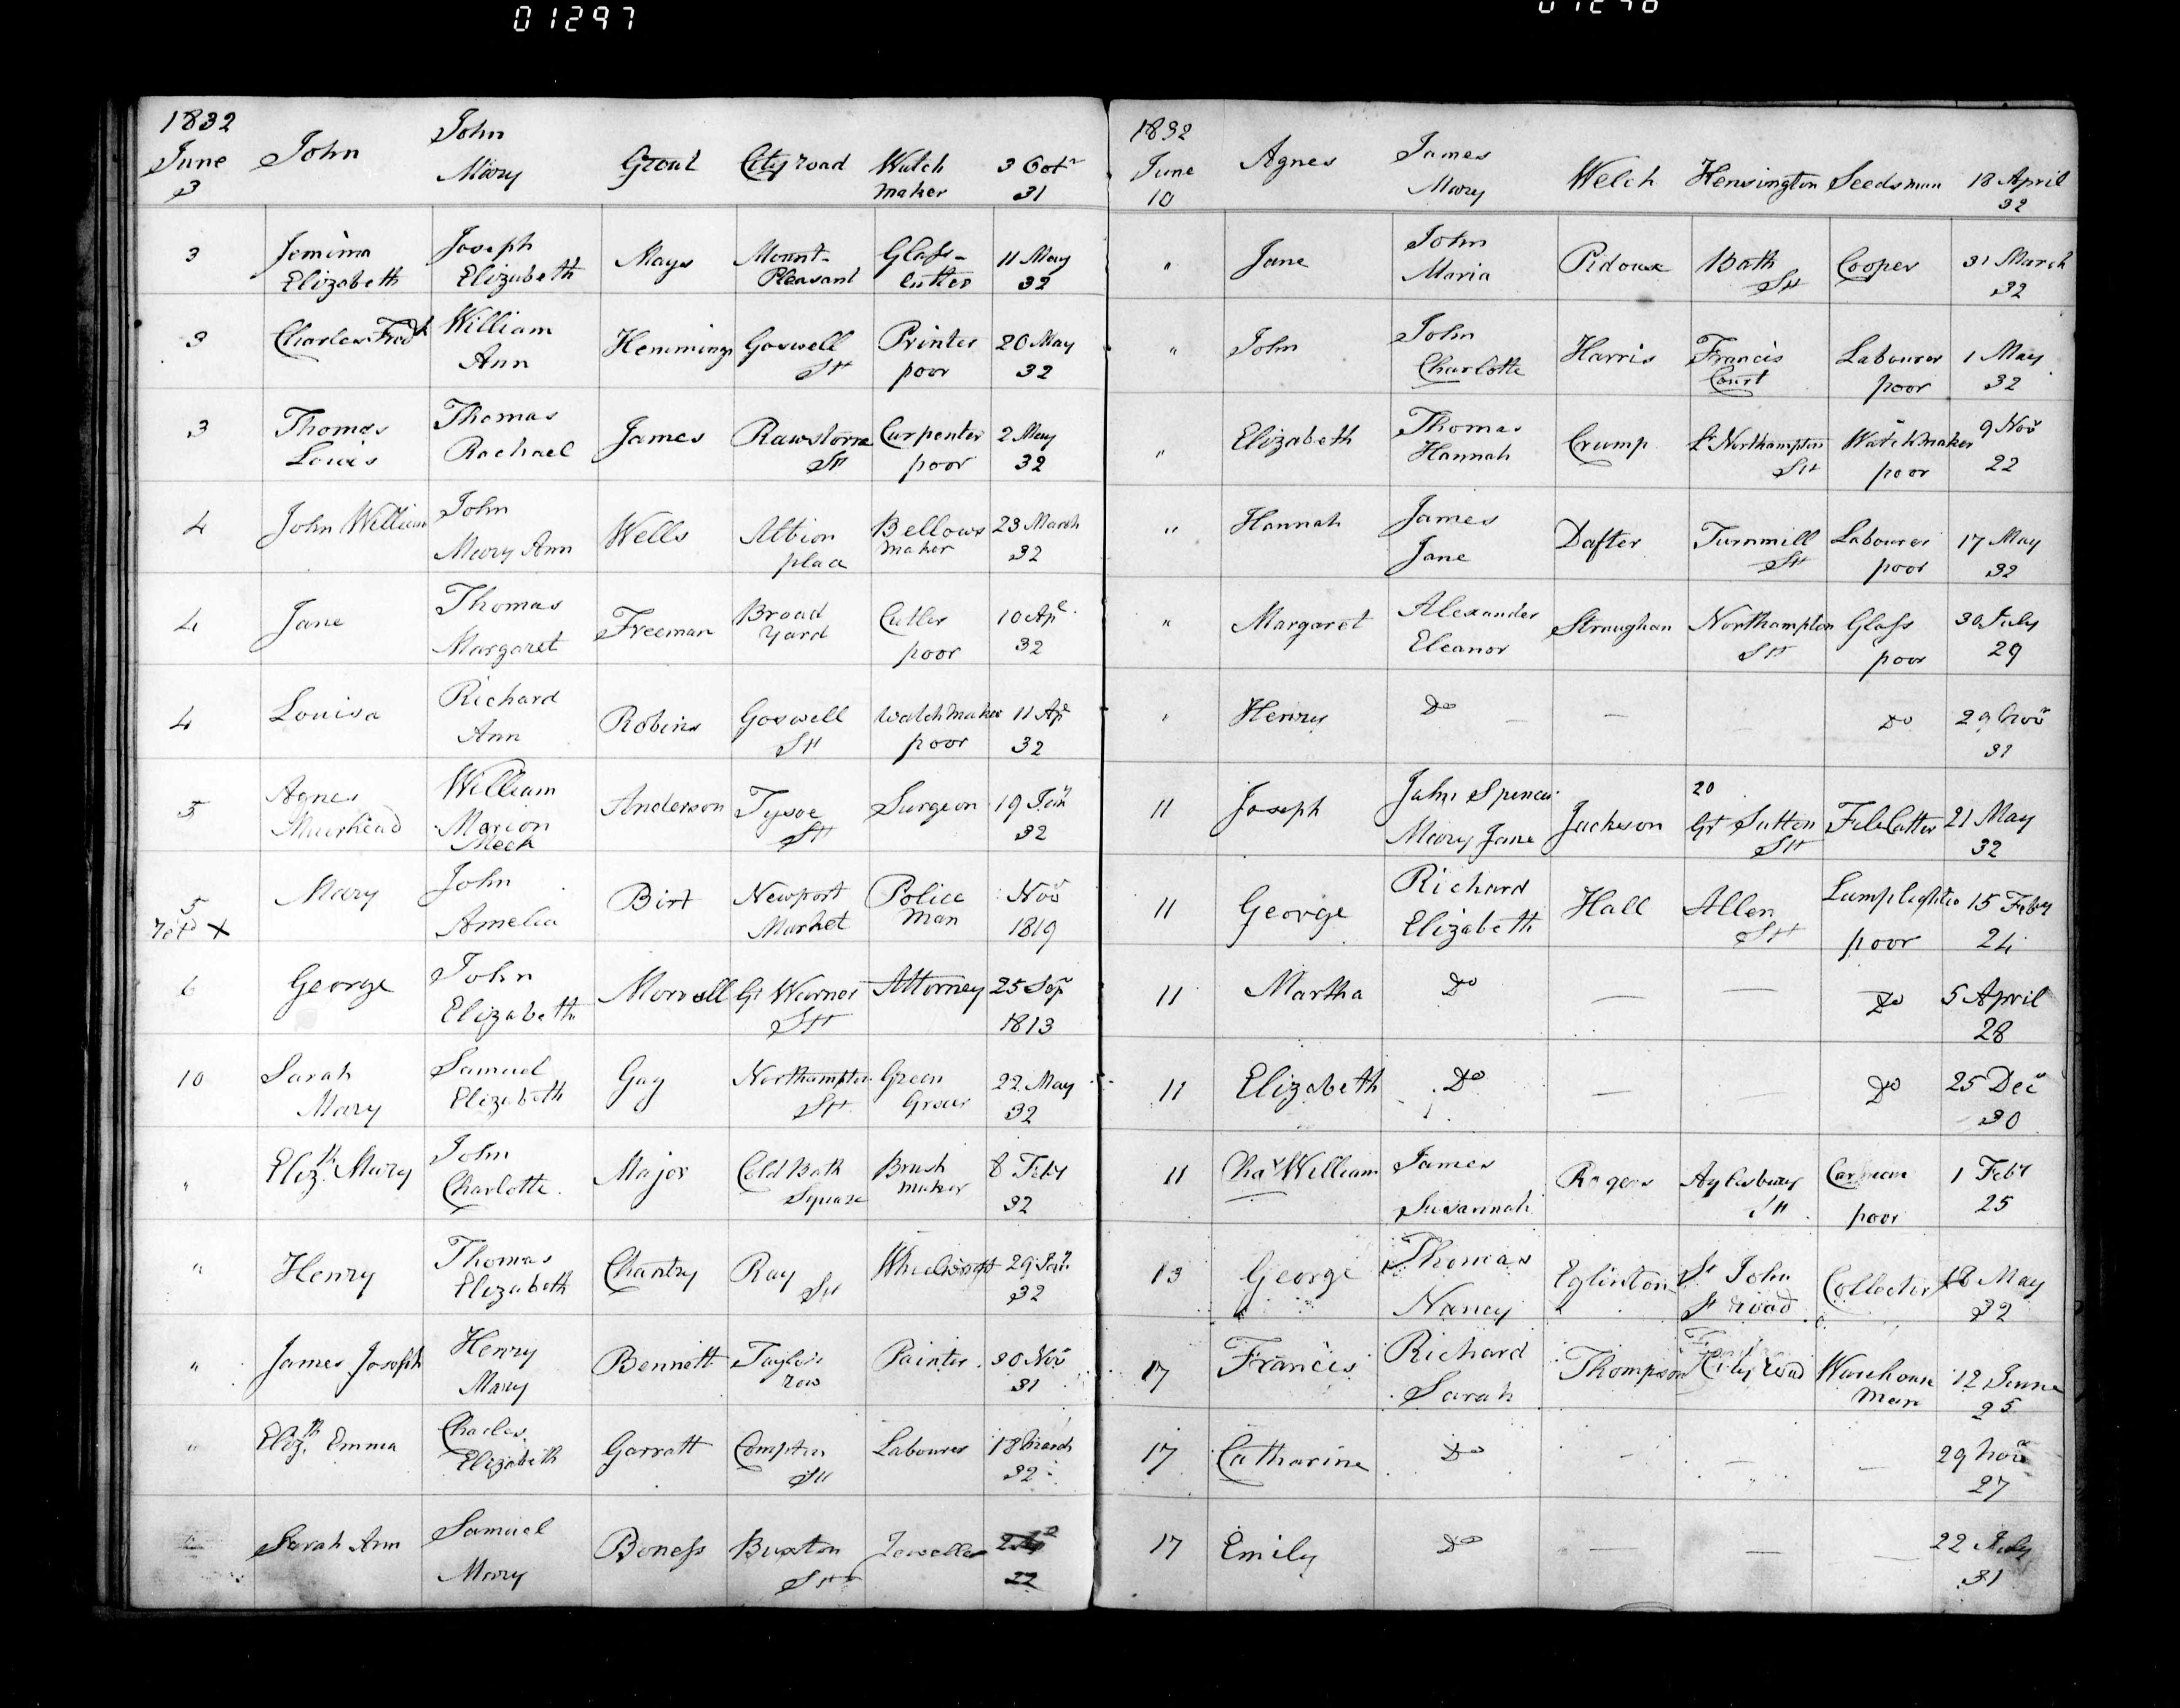 01297
1832
June 3 John John Mary Grout City road Watch maker 3 Octr 31
3 Jemima Elizabeth Joseph Elizabeth Mays Mount Pleasant Glass cutter 11 May 32
3 Charles Fredk William Ann Hemmings Goswell St Printer poor 20 May 32
3 Thomas Louis Thomas Rachael James Rawstorne St Carpenter poor 2 May 32
4 John William John Mary Ann Wells Albion place Bellows maker 23 March 32
4 Jane Thomas Margaret Freeman Broad Yard Cutler poor 10 Apl 32
4 Louisa Richard Ann Robins Goswell St Watchmaker poor 11 Apl 32
5 Agnes Muirhead William Marion Meek Anderson Tysoe St Surgeon 19 Jan 32
5 X Mary John Amelia Birt Newport Market Police Man Nov 1819
6 George John Elizabeth Gt Warner St Attorney 25 Sep 1813
10 Sarah Mary Samuel Elizabeth Gay Northampton St Green Grocer 22 May 32
" Elizth Mary John Charlotte Major Cold Bath Square Brush maker 8 Feby 32
" Henry Thomas Elizabeth Chantry Ray St Wheelwright 29 Jan 32
" James Joseph Henry Mary Bennett Taylors row Painter 30 Nov 31
" Elizth Emma Charles Elizabeth Garratt Compton St Labourer 18 March 32
Sarah Ann Samuel Mary Boness Buxton St Jeweller
1832
June 10 Agnes James Mary Welch Kensington Seedsman 18 April 32
" Jane John Maria Pidoux Bath St Cooper 31 March 32
" John John Charlotte Harris Francis Court Labourer poor 1 May 32
" Elizabeth Thomas Hannah Crump Northampton St Watchmaker poor 9 Nov 22
" Hannah James Jane Dafter Turnmill St Labourer poor 17 May 32
" Margaret Alexander Eleanor Straughan Northampton St Glass poor 30 July 29
" Henry Do — — Do 29 Nov 31
11 Joseph John Spencer Mary Jane Jackson 20 Gt Sutton St File Cutter 21 May 32
11 George Richard Elizabeth Hall Allen St Lamplighter poor 15 Feby 24
11 Martha Do — — Do 5 April 28
11 Elizabeth Do — — Do 25 Dec 30
11 Chas William James Susannah Rogers Aylesbury St Carman poor 1 Feby 25
13 George Thomas Nancy Eglinton St John St road Collector 18 May 32
17 Francis Richard Sarah Thompson City road Warehouse man 12 June 25
17 Catharine Do — — — 29 Nov 27
17 Emily Do — — — 22 July 31